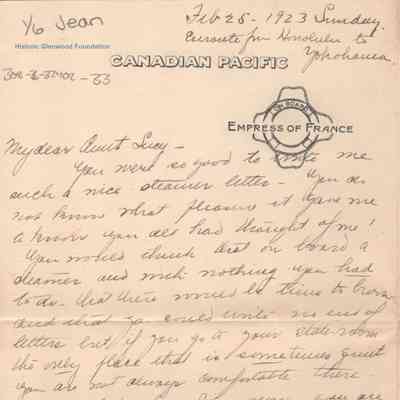 1/6 Jean
Feb 25 - 1923 Sunday.
Historic Glenwood Foundation
Enroute from Honolulu to
Yokohama.
CANADIAN PACIFIC
ON BOARD
EMPRESS OF FRANCE
My dear Aunt Lucy -
You were so good to write me
such a nice steamer letter - You do
not know what pleasure it gave me
to know you all had thought of me!
You would think that on board a
steamer and with nothing you had
to do - that there would be time to
and that you could write no end of
letters but if you go to your stateroom
the only place that is sometimes quiet
you are not always comfortable there -
you are